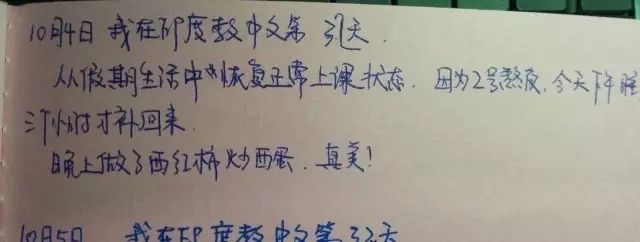 10月4日 我在印度教中文第 31天.
从假期生活中恢复正常上课状态. 因为2号熬夜, 今天下午睡
三个小时才补回来.
晚上做了西红柿炒西蛋. 真美!
10月5日 我在印度教中文第32天